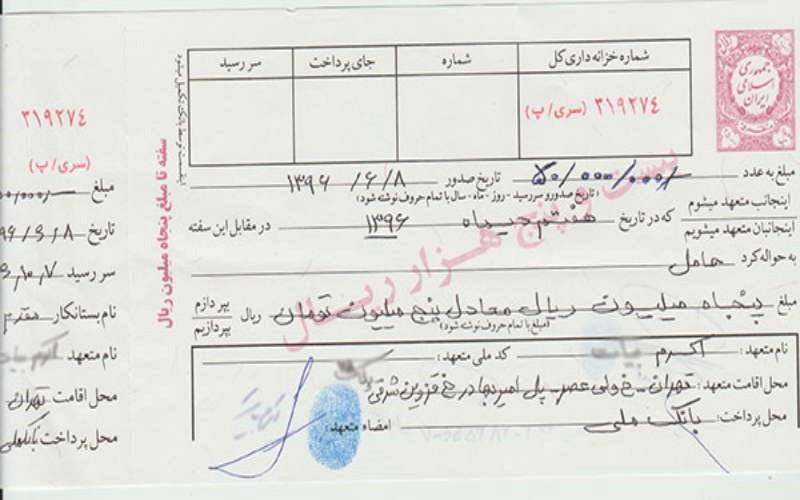 جمهوری
اسلامی
ایران
شماره خزانه داری کل
شماره
جای پرداخت
سر رسید
۳۱۹۲۷۴ (سری/پ)
۳۱۹۲۷۴
(سری/پ)
سفته تا مبلغ پنجاه میلیون ریال
بیست و پنج هزار ریال
مبلغ به عدد ۵۰/۰۰۰/۰۰۰/ تاریخ صدور ۱۳۹۶/۶/۸
(تاریخ صدور و سررسید - روز - ماه - سال با تمام حروف نوشته شود)
اینجانب متعهد میشوم
اینجانبان متعهد میشویم
که در تاریخ هفتم دیماه ۱۳۹۶ در مقابل این سفته
به حواله کرد حامل
مبلغ پنجاه میلیون ریال معادل پنج میلیون تومان ریال
بپردازم
بپردازیم
(مبلغ با تمام حروف نوشته شود)
نام متعهد: اکرم
کد ملی متعهد:
محل اقامت متعهد: تهران - خ ولی عصر - پل امیربهادر خ قزوین شرقی
محل پرداخت: بانک ملی
امضاء متعهد:
مبلغ
تاریخ
سر رسید
نام بستانکار
نام متعهد
محل اقامت تهران
محل پرداخت